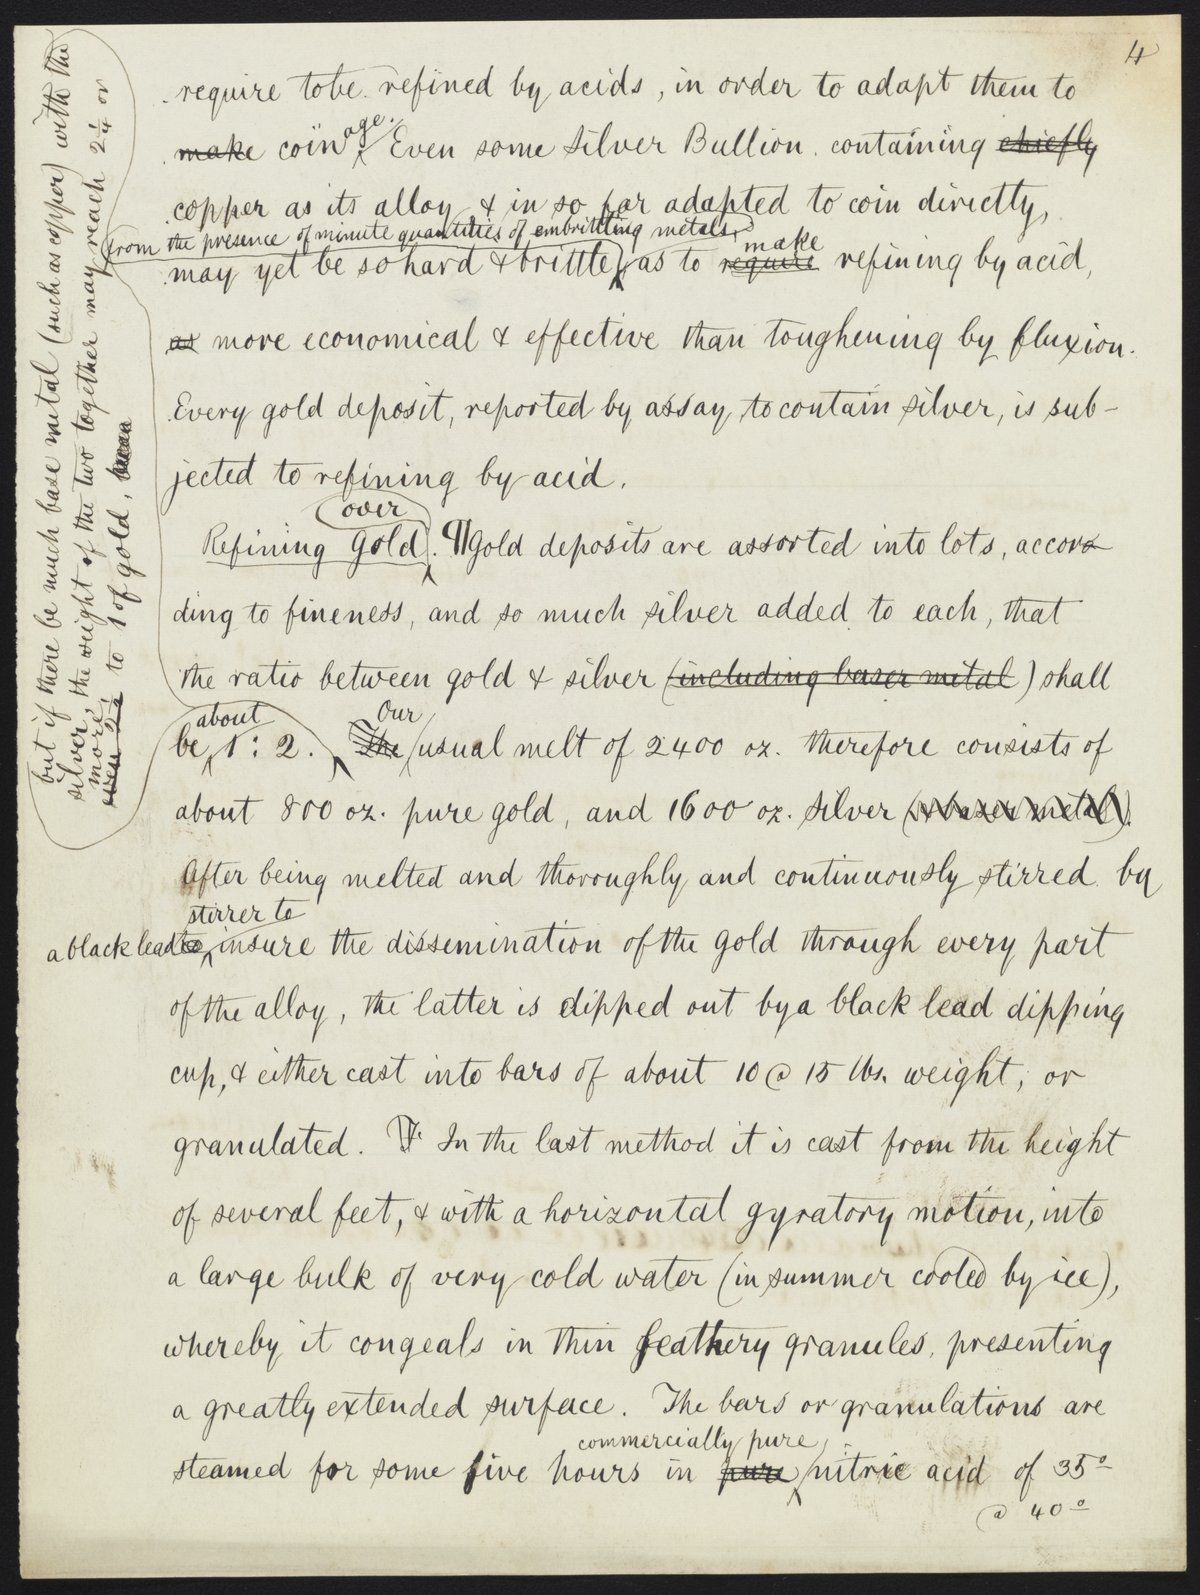 4
require to be refined by acids, in order to adapt them to
make coinage. Even some Silver Bullion containing chiefly
copper as its alloy & in so far adapted to coin directly,
from the presence of minute quantities of embrittling metals,
may yet be so hard & brittle, as to require make refining by acid,
as more economical & effective than toughening by fluxion.
Every gold deposit, reported by assay to contain silver, is sub-
jected to refining by acid.
over
Refining gold. ¶ Gold deposits are assorted into lots, accor-
ding to fineness, and so much silver added to each, that
the ratio between gold & silver (including baser metal) shall
about Our
be 1 : 2. The usual melt of 2400 oz. therefore consists of
about 800 oz. pure gold, and 1600 oz. silver (& baser metal).
After being melted and thoroughly and continuously stirred by
stirrer to
a black lead to insure the dissemination of the gold through every part
of the alloy, the latter is dipped out by a black lead dipping
cup, & either cast into bars of about 10 @ 15 lbs. weight, or
granulated. ¶ In the last method it is cast from the height
of several feet, & with a horizontal gyratory motion, into
a large bulk of very cold water (in summer cooled by ice),
whereby it congeals in thin feathery granules, presenting
a greatly extended surface. The bars or granulations are
commercially pure
steamed for some five hours in pure nitric acid of 35°
@ 40°
but if there be much base metal (such as copper) with the
silver, the weight of the two together may reach 2 1/4 or
more to 1 of gold,
even 2 1/2